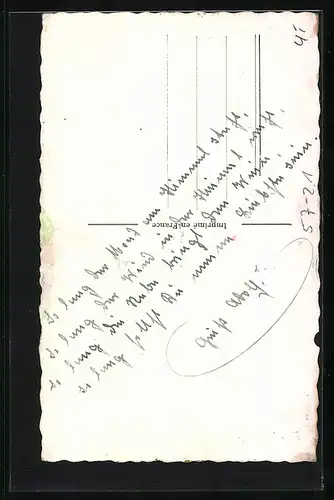 So lang der Mond am Himmel steht,
so lang der Wind in der Heimat weht,
so lang die Rebe bringt den Wein
so lang sollst Du unser sein.
Gruß Adolf
Imprimé en France
57-21